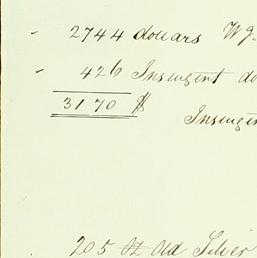 - 2744 dollars Wg.
- 426 Insurgent do
3170 $
Insurgen
205 oz Old Silver